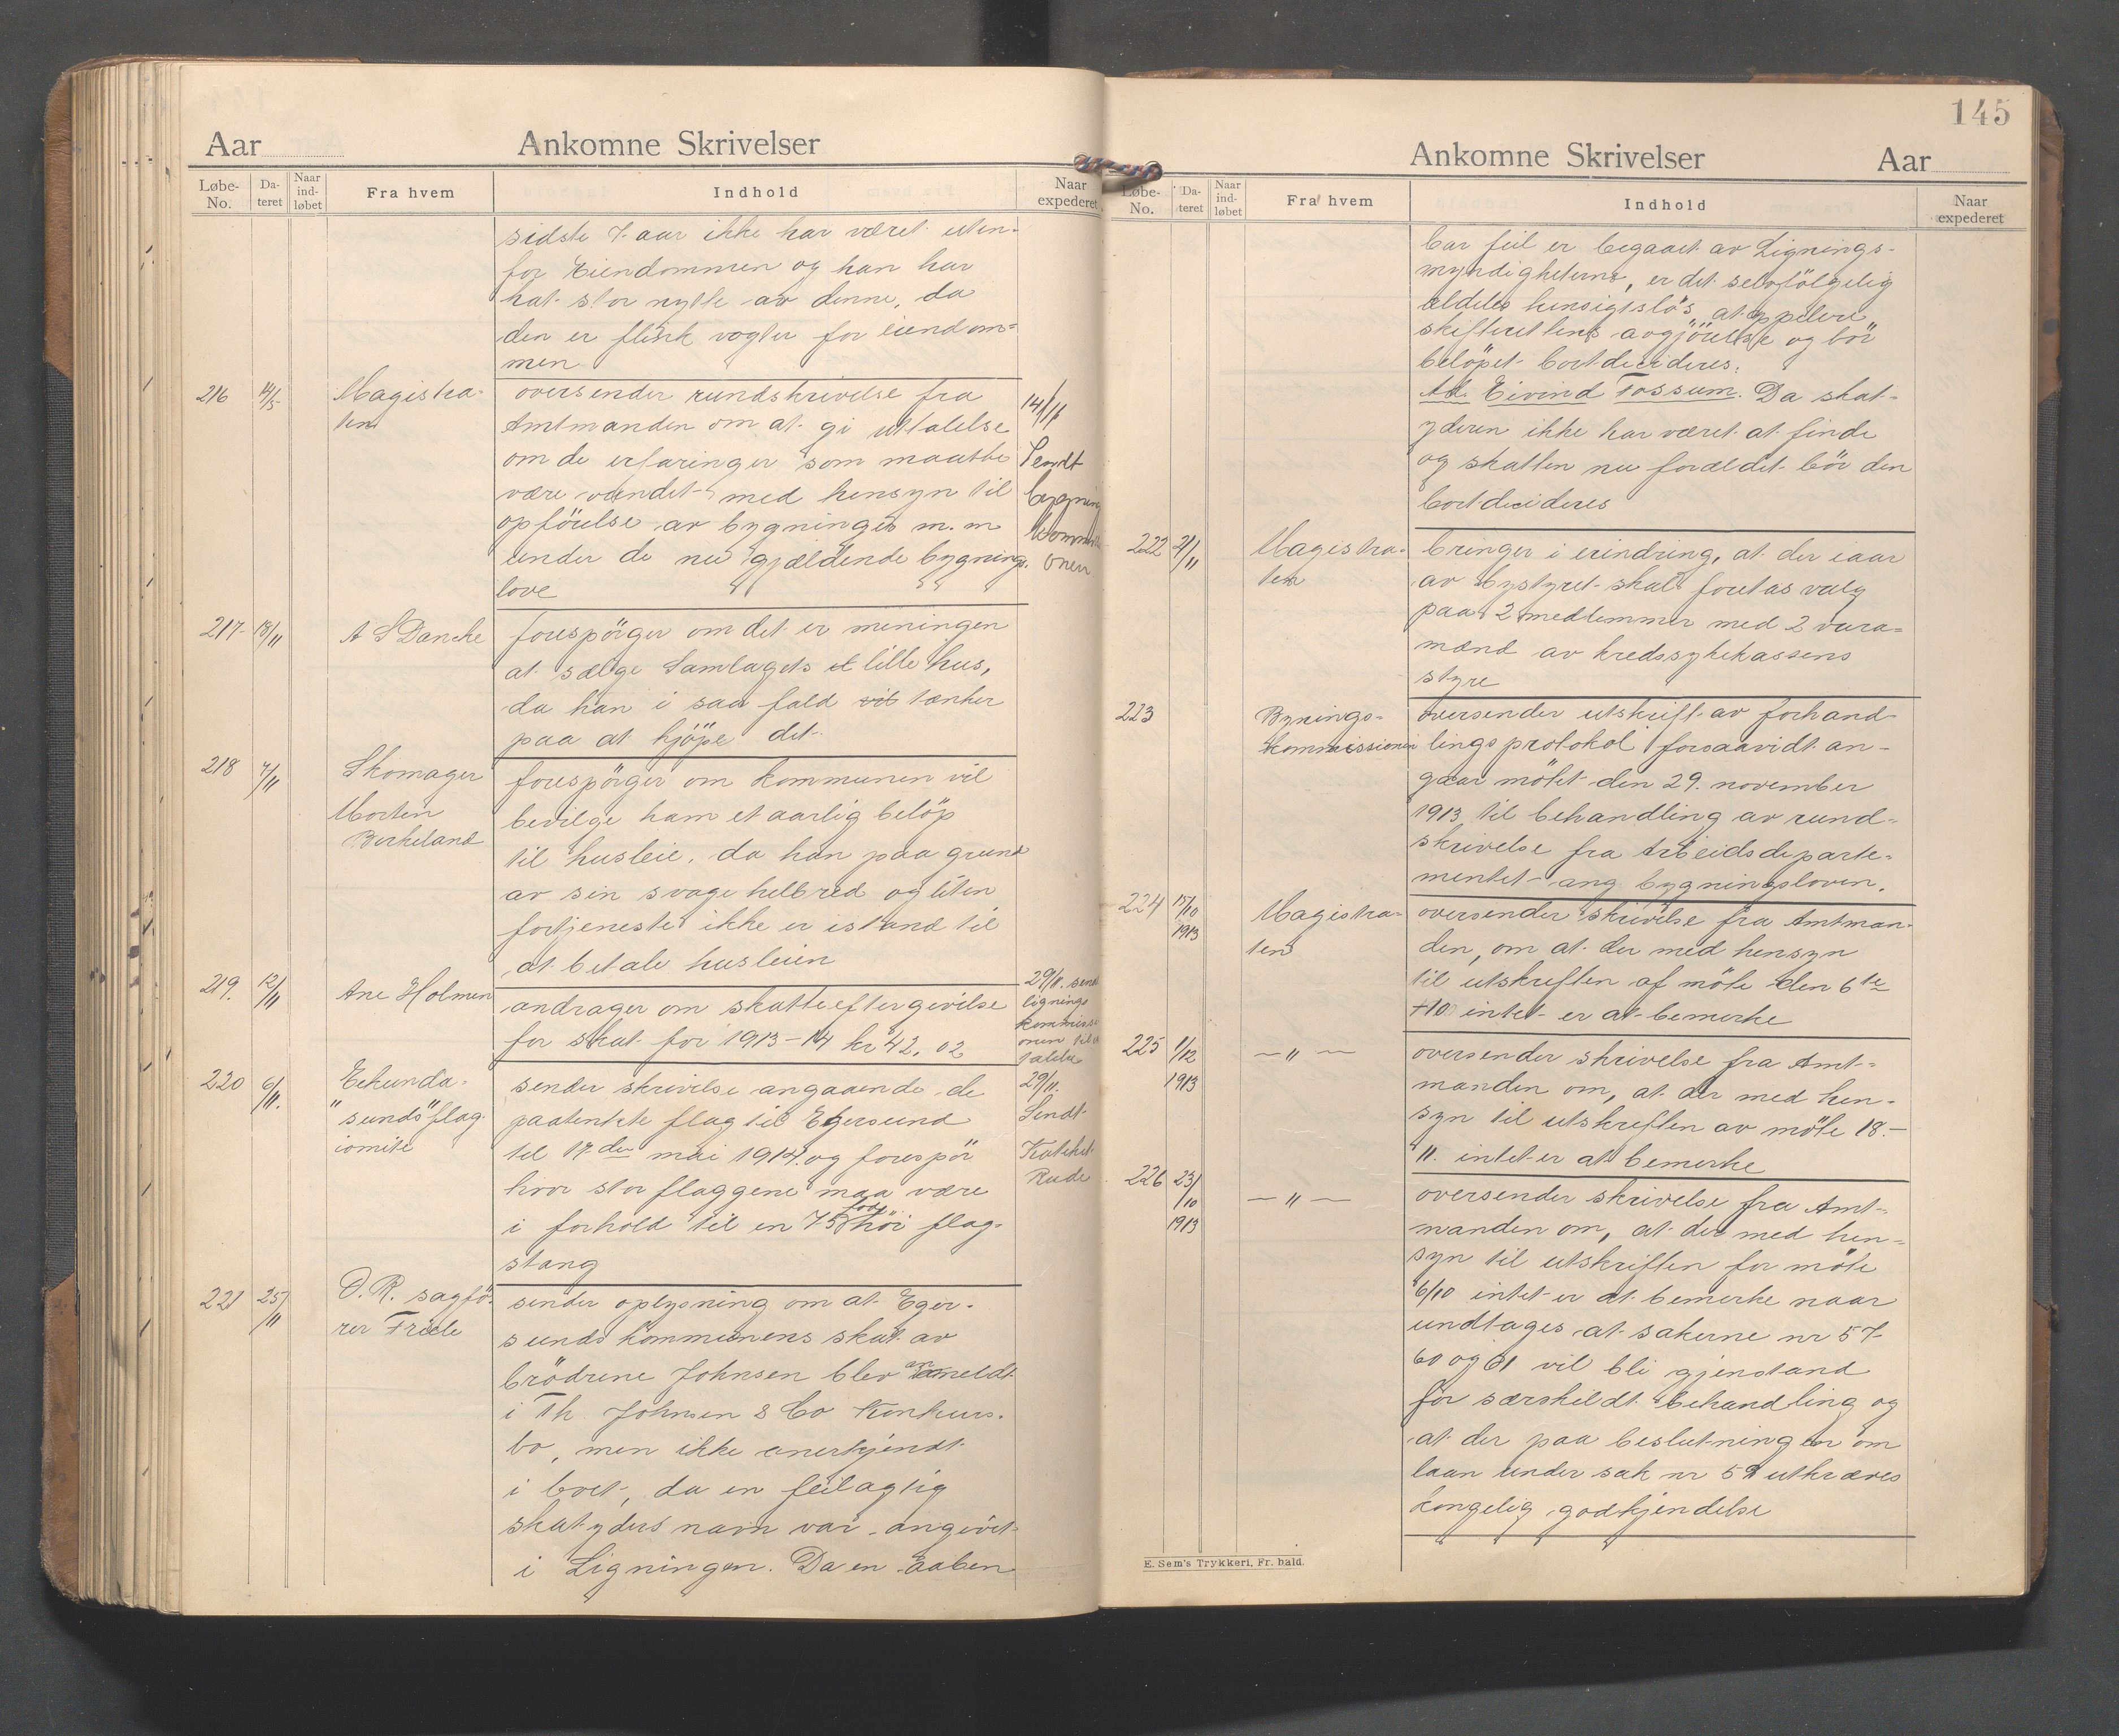 Aar
Ankomne Skrivelser
Løbe-No.
Da-teret
Naar ind-løbet
Fra hvem
Indhold
Naar expederet
sidste 7 aar ikke har været uten-
for Eiendommen og han har
hat stor nytte av denne, da
den er flink vogter for eiendom=
men
216 14/5 Magistra-
ten
oversender rundskrivelse fra
Amtmanden om at gi uttalelse
om de erfaringer som maatte
være vundet med hensyn til
opförelse av bygninger m. m
under de nu gjældende bygnings-
love
14/11
Sendt
bygning
kommissi
onen
217 13/11 A S Dancke
forespörger om det er meningen
at sælge Samlagets et lille hus,
da han i saa fald vil tænker
paa at kjöpe det.
218 7/11 Skomager
Morten
Birkeland
forespörger om kommunen vil
bevilge ham et aarlig belöp
til husleie, da han paa grund
av sin svage helbred og liten
fortjeneste ikke er istand til
at betale husleien
219. 12/11 Ane Holmen
andrager om skatteeftergivelse
for skat for 1913-14 kr 42,02
29/11. send
lignings
kommissi
onen til u
talelse
220 6/11. Eekunda-
"sunds" flag
comite
sender skrivelse angaaende de
paatenkte flag til Egersund
til 17de mai 1914. og forespör
hvor stor flaggene maa være
i forhold til en 75 fods höi flag-
stang
29/11.
Sendt
Kateket
Rude
221 25/11 O.R. sagfö-
rer Friele
sender oplysning om at Eger-
sunds kommunens skat av
brödrene Johnsen blev anmeldt
i Th Johnsen & Co Konkurs-
bo, men ikke anerkjendt
i boet, da en feilagtig
skatyders navn var angivet
i Ligningen. Da en aaben
145
Ankomne Skrivelser
Aar
Løbe-No.
Da-teret
Naar ind-løbet
Fra hvem
Indhold
Naar expederet
bar feil er begaaet av Lignings-
myndigheterne, er det selvfölgelig
aldeles hensigtslös, at appelere
skifterettens avgjörelse og bör
belöpet bortdecideres.
Ad. Eivind Tossum. Da skat-
yderen ikke har været at finde
og skatten nu forældet bör den
bortdecideres
222 21/11 Magistra-
ten
bringer i erindring, at der iaar
av bystyret skal foretas valg
paa 2 medlemmer med 2 vara=
mænd av kredssykekassens
styre
223 Bynings-
kommissionen
oversender utskrift av forhand-
lingsprotokol forsaavidt an-
gaar mötet den 29. november
1913 til behandling av rund-
skrivelse fra Arbeidsdeparte-
mentet ang bygningsloven.
224 15/10
1913
Magistra-
ten
oversender skrivelse fra Amtman-
den, om at der med hensyn
til utskriften af möte den 6te
10 intet er at bemerke
225 1/12
1913
— " —
oversender skrivelse fra Amt-
manden om, at der med hen-
syn til utskriften av möte 18.-
11. intet er at bemerke
226 23/10
1913
— " —
oversender skrivelse fra Amt-
manden om, at der med hen-
syn til utskriften for möte
6/10 intet er at bemerke naar
undtages at sakerne nr 57
60 og 61 vil bli gjenstand
for særskildt behandling og
at der paa beslutningen om
laan under sak nr 59 utkræves
kongelig godkjendelse
E. Sem's Trykkeri, Fr. hald.